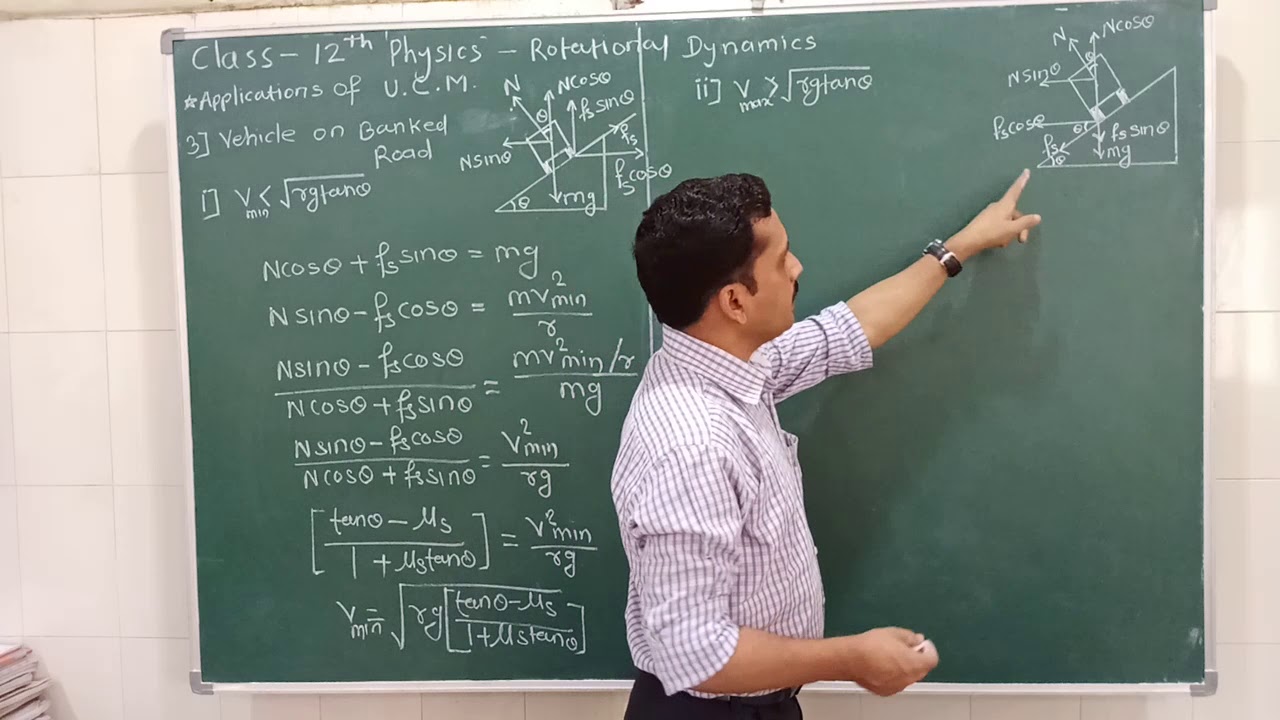 Class - 12th 'Physics' - Rotational Dynamics
*Applications of U.C.M.
3] Vehicle on Banked
Road
N
Ncosθ
fs sinθ
θ
fs
Nsinθ
fs cosθ
mg
θ
i] Vmin < √rgtanθ
Ncosθ + fs sinθ = mg
Nsinθ - fs cosθ = mv²min / r
Nsinθ - fs cosθ / Ncosθ + fs sinθ = mv²min/r / mg
Nsinθ - fs cosθ / Ncosθ + fs sinθ = v²min / rg
[tanθ - μs / 1 + μs tanθ] = v²min / rg
Vmin = √rg[tanθ - μs / 1 + μs tanθ]
ii] Vmax > √rgtanθ
N
Ncosθ
θ
Nsinθ
fs cosθ
θ
fs sinθ
fs
mg
θ